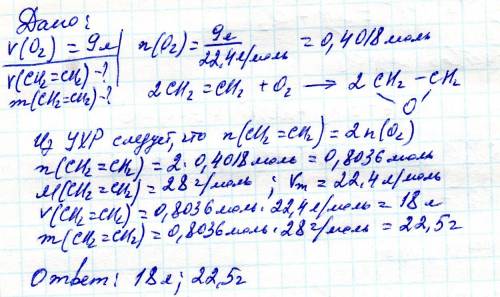 Дано:
V(O₂) = 9л
n(O₂) = 9л / 22,4л/моль = 0,4018моль
V(CH₂=CH₂)-?
m(CH₂=CH₂)-?
2CH₂=CH₂ + O₂ → 2CH₂-CH₂
O
Из УХР следует, что n(CH₂=CH₂) = 2n(O₂)
n(CH₂=CH₂) = 2·0,4018моль = 0,8036моль
M(CH₂=CH₂) = 28г/моль ; Vm = 22,4л/моль
V(CH₂=CH₂) = 0,8036моль·22,4л/моль = 18л
m(CH₂=CH₂) = 0,8036моль·28г/моль = 22,5г
Ответ: 18л; 22,5г